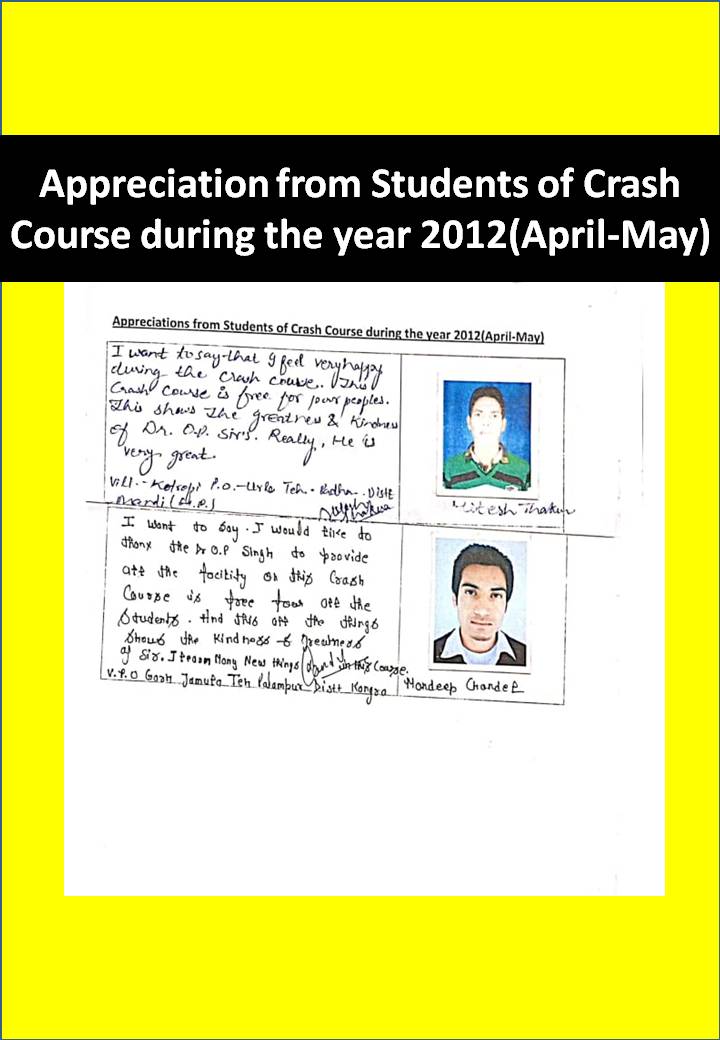 Appreciation from Students of Crash
Course during the year 2012(April-May)
Appreciations from Students of Crash Course during the year 2012(April-May)
I want to say that I feel very happy
during the Crash course. This
Crash Course is free for poor peoples.
This shows the greatness & Kindness
of Dr. O.P. Sir's. Really, He is
very great.
Vill.- Kotropi P.O.-Urla Teh. Padhar Distt
Mandi (H.P.)
Mitesh Thakur
I want to say. I would like to
thanx the Dr O.P Singh to provide
all the facility on this Crash
Course is free four all the
Students. And this all the things
shows the Kindness & Greatness
of Sir. I learn Many New things in this Course.
V.P.O Garh Jamula Teh Palampur Distt Kangra
Mandeep Chandel